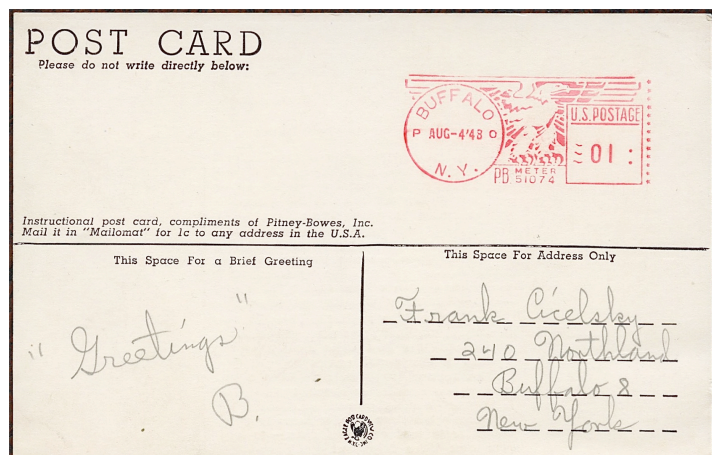 POST CARD
Please do not write directly below:
BUFFALO
P AUG-4'48 O
N.Y.
U.S. POSTAGE
01
PB METER
51074
Instructional post card, compliments of Pitney-Bowes, Inc.
Mail it in "Mailomat" for 1c to any address in the U.S.A.
This Space For a Brief Greeting
"Greetings"
B.
This Space For Address Only
Frank Cicelsky
240 Northland
Buffalo 8
New York